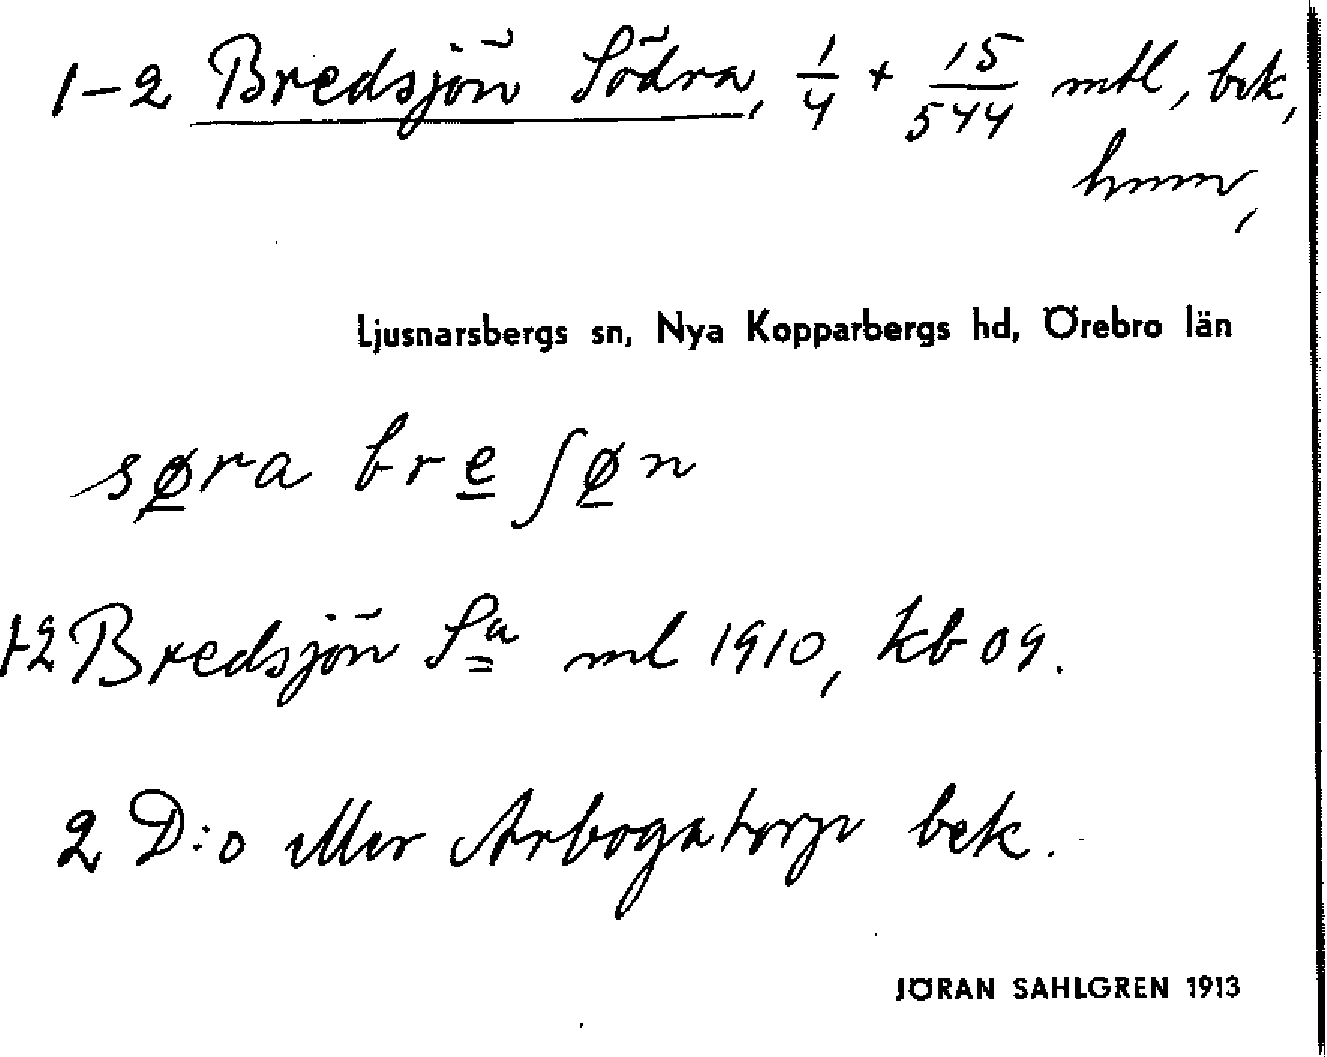 1-2 Bredsjön Södra, 1/4 + 15/544 mtl, bek,
hmn,
Ljusnarsbergs sn, Nya Kopparbergs hd, Örebro län
søra breʃøn
1-2 Bredsjön Sa ml 1910, kb 09.
2 D:o eller Arbogatorp bek.
JÖRAN SAHLGREN 1913